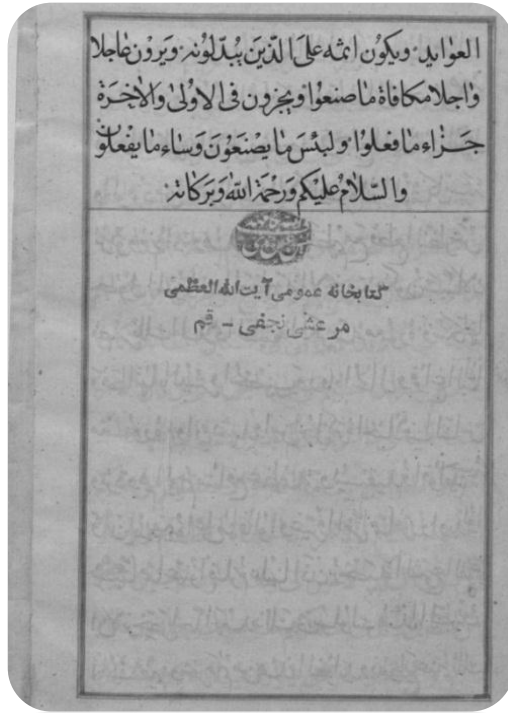 العوايد ويكون اثمه على الذين يبدلونه ويرون عاجلا
واجلا مكافاة ما صنعوا ويجزون فى الاولى والاخرة
جزاء ما فعلوا ولبئس ما يصنعون وساء ما يفعلون
والسّلام عليكم ورحمة الله وبركاته
كتابخانه عمومی آیت الله العظمی
مرعشی نجفی - قم